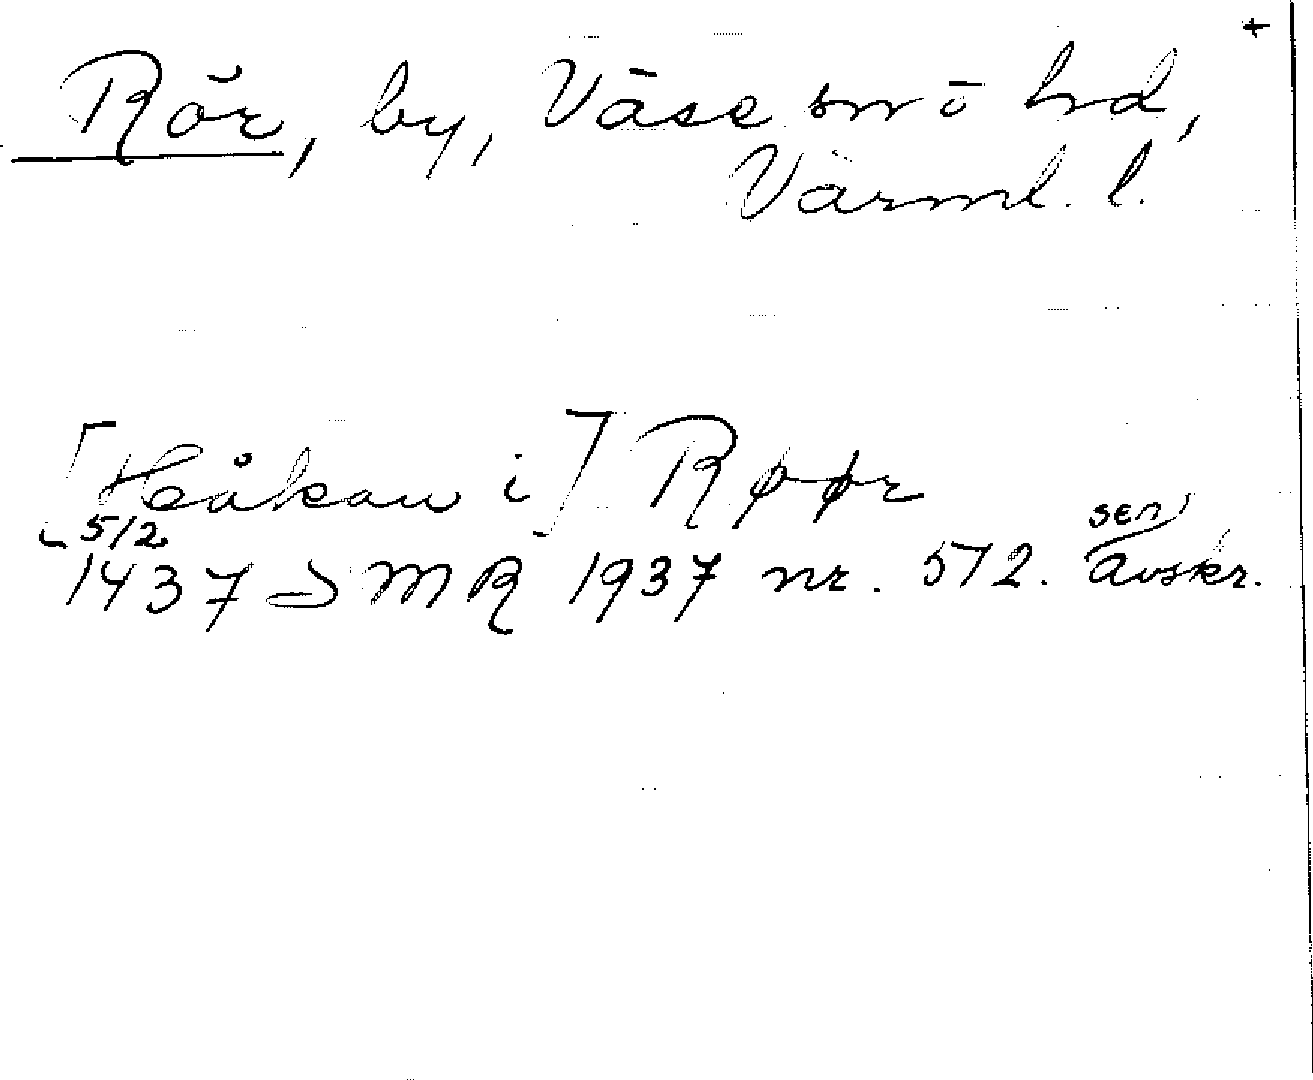 +
Rör, by, Väse sn ō hd,
Värml. l.
[Håkan i] Røør
5/2
1437 SMR 1937 nr. 572. sen avskr.